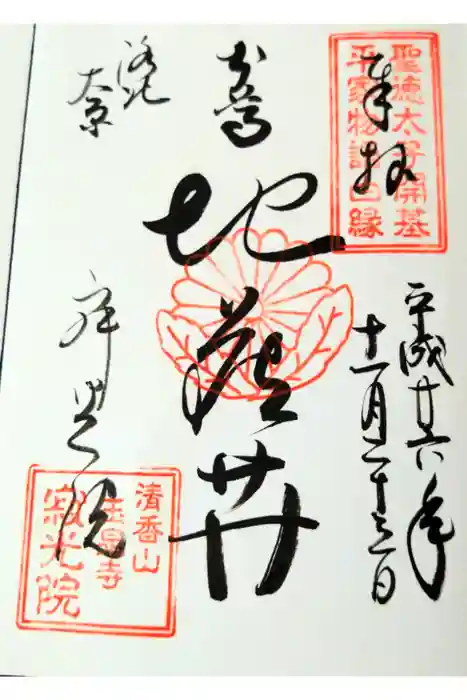 奉拝
聖徳太子開基
平家物語因縁
平成廿六年
十一月二十三日
地蔵
洛北
大原
寂光院
清香山
玉泉寺
寂光院